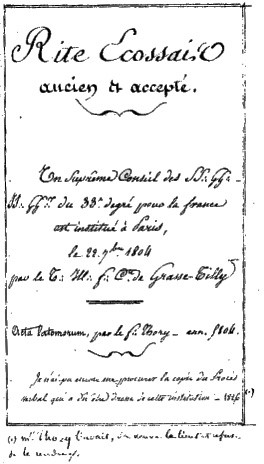 Rite Ecossais
ancien & accepté.
Un Suprême Conseil des SS∴ GG∴ -
II∴ GG∴ du 33e degré pour la france
est institué à Paris,
le 22. 7bre 1804
par le T∴ Ill∴ f∴ Cte de Grasse-Tilly
Acta Latomorum, par le f∴ Thory - ann. 1804.
Je n'ai pu encore me procurer la copie du Procès
verbal qui a dû être dressé de cette institution - 1826 (1)
(1) Mr Thory l'avait,
de le rendre